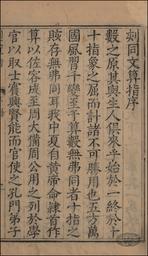 刻同文算指序
數之原其與生人俱來乎始於一終於十
十指象之屈而計諸不可勝用也五方萬
國風習千變至于算數無弗同者十指之
賅存無弗同耳我中夏自黃帝命隸首作
算以佐容成至周大備周公用之列於學
官以取士賓興賢能而官使之孔門弟子